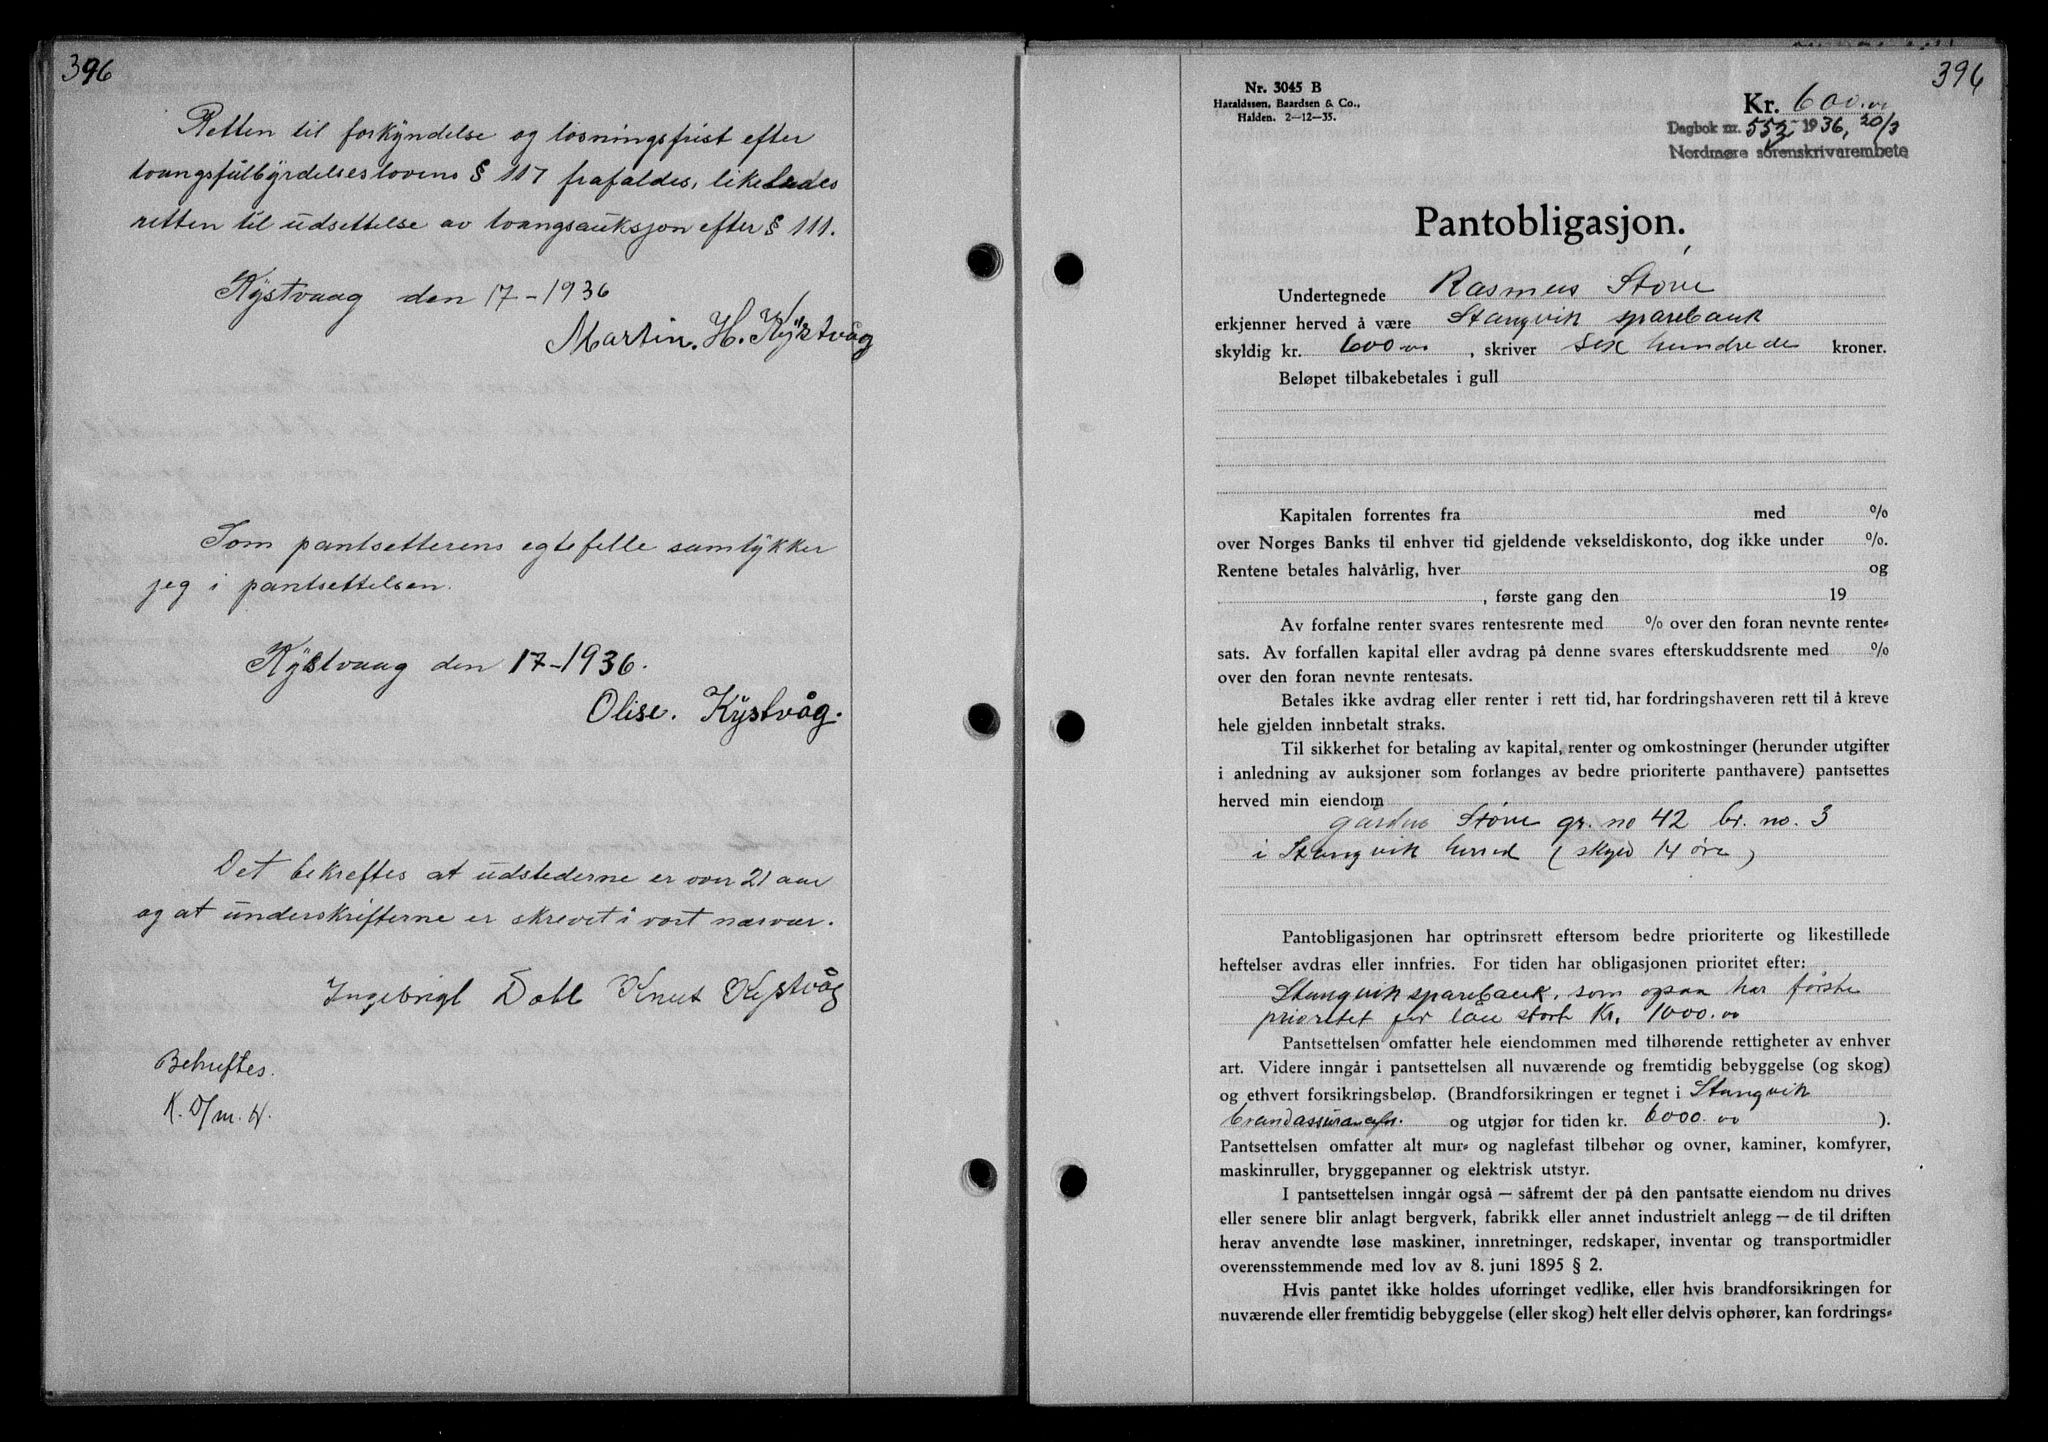 396
Retten til forkyndelse og løsningsfrist efter
tvangsfulbyrdelseslovens § 117 frafaldes, likeledes
retten til udsettelse av tvangsauksjon efter § 111.
Kystvaag den 17-1936
Martin. H. Kystvåg
Som pantsetterens egtefelle samtykker
jeg i pantsettelsen.
Kystvaag den 17-1936.
Olise. Kystvåg.
Det bekreftes at udstederne er over 21 aar
og at underskrifterne er skrevet i vort nærvær.
Ingebrigt Dahl Knut Kystvåg
Bekreftes.
396
Nr. 3045 B
Haraldssøn, Baardsen & Co.,
Halden. 2-12-35.
Kr. 600.00
Dagbok nr. 552 - 1936, 20/3
Nordmøre sorenskrivarembete
Pantobligasjon.
Undertegnede Rasmus Støve
erkjenner herved å være Stangvik sparebank
skyldig kr. 600 00, skriver sex hundrede kroner.
Beløpet tilbakebetales i gull
Kapitalen forrentes fra med %
over Norges Banks til enhver tid gjeldende vekseldiskonto, dog ikke under %.
Rentene betales halvårlig, hver og
, første gang den 19
Av forfalne renter svares rentesrente med % over den foran nevnte rente-
sats. Av forfallen kapital eller avdrag på denne svares efterskuddsrente med %
over den foran nevnte rentesats.
Betales ikke avdrag eller renter i rett tid, har fordringshaveren rett til å kreve
hele gjelden innbetalt straks.
Til sikkerhet for betaling av kapital, renter og omkostninger (herunder utgifter
i anledning av auksjoner som forlanges av bedre prioriterte panthavere) pantsettes
herved min eiendom
gården Støve gr. no 42 br. no. 3
i Stangvik herred (skyld 14 øre)
Pantobligasjonen har optrinsrett eftersom bedre prioriterte og likestillede
heftelser avdras eller innfries. For tiden har obligasjonen prioritet efter:
Stangvik sparebank, som ogsaa har første
prioritet for lån stort Kr. 1000.00
Pantsettelsen omfatter hele eiendommen med tilhørende rettigheter av enhver
art. Videre inngår i pantsettelsen all nuværende og fremtidig bebyggelse (og skog)
og ethvert forsikringsbeløp. (Brandforsikringen er tegnet i Stangvik
og utgjør for tiden kr. 6000.00 ).
Pantsettelsen omfatter alt mur- og naglefast tilbehør og ovner, kaminer, komfyrer,
maskinruller, bryggepanner og elektrisk utstyr.
I pantsettelsen inngår også — såfremt der på den pantsatte eiendom nu drives
eller senere blir anlagt bergverk, fabrikk eller annet industrielt anlegg — de til driften
herav anvendte løse maskiner, innretninger, redskaper, inventar og transportmidler
overensstemmende med lov av 8. juni 1895 § 2.
Hvis pantet ikke holdes uforringet vedlike, eller hvis brandforsikringen for
nuværende eller fremtidig bebyggelse (eller skog) helt eller delvis ophører, kan fordrings-